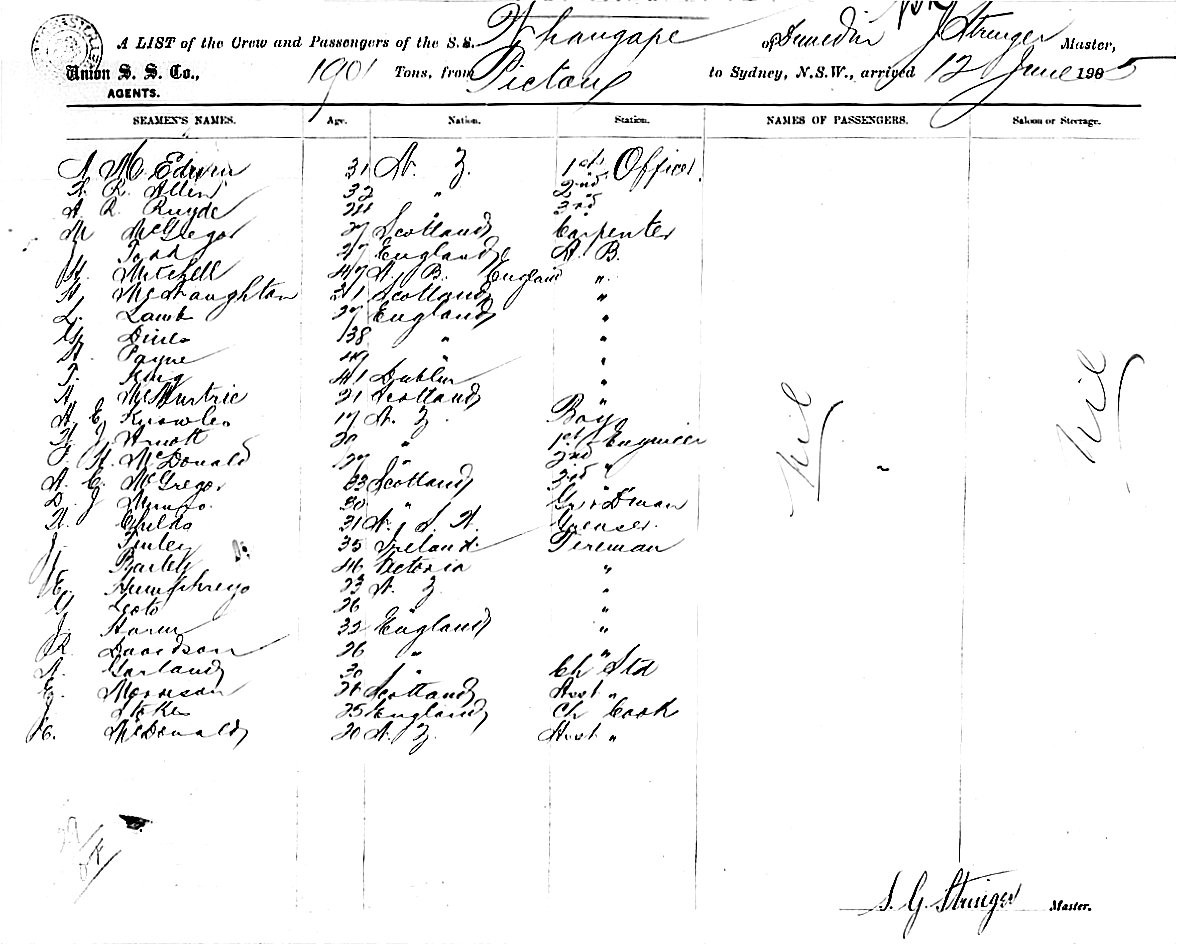 A LIST of the Crew and Passengers of the S.S. Whangape of Dunedin J Stringer Master,
Union S. S. Co., 1901 Tons, from Picton to Sydney, N.S.W., arrived 12 June 1905
AGENTS.
SEAMEN'S NAMES. Age. Nation. Station. NAMES OF PASSENGERS. Saloon or Steerage.
A Mc Edwin 31 N. Z. 1st Officer
R. Allen 32 " 2nd "
A R. Ruyde 24 " 3rd "
M McGregor 27 Scotland Carpenter
J Todd 27 England A. B.
H. Mitchell 47 N. B. England "
A. McNaughton 21 Scotland "
L. Lamb 27 England "
G. Dines 38 " "
H. Payne 49 " "
T. King 41 Dublin "
A. McMurtrie 21 Scotland "
A. E. Knowles 17 N. Z. Boy
J Arnott " 1st Engineer
H. McDonald 27 " 2nd "
A. C. McGregor 33 Scotland 3rd "
D. J Munro. 30 " Gr & D'man
Childs 31 N. S. W. Greaser.
J. Finley 35 Ireland Fireman
J. Bailey 46 Victoria "
E. Humphreys 23 N. Z. "
G. 26 " "
J. 32 England "
R. Davidson 26 " "
A. Garland 30 " Ch Std
E. Morrison Scotland Asst "
J Stokes 25 England Ch Cook
C. McDonald 20 N. Z. Asst "
Nil Nil
S. G. Stringer Master.